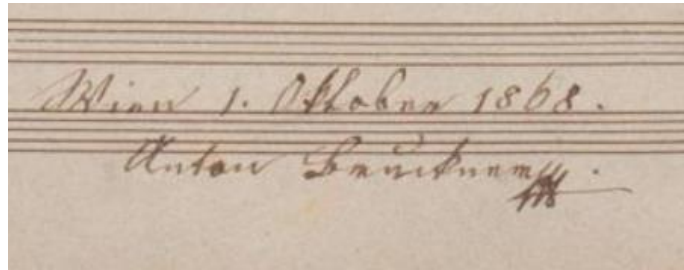 Wien 1. Oktober 1868.
Anton Bruckner